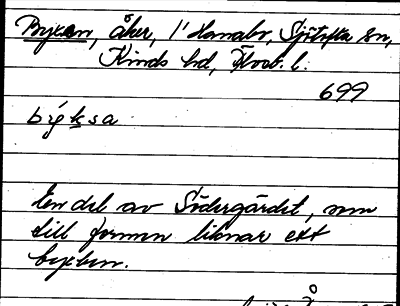 Byxan, åker, 1 Hamabo, Sjötofta sn,
Kinds hd, Älvsb. l.
699
býksa
En del av Södergärdet, som
till formen liknar ett
byxben.